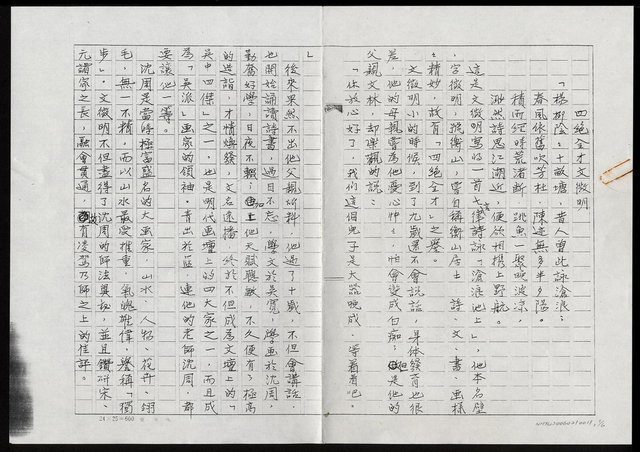 四絕全才文徵明
「楊柳陰陰十畝塘，昔人曾此詠滄浪；
春風依舊吹芳杜，陳迹無多半夕陽。
積雨經時荒渚斷，跳魚一聚晚波涼，
渺然詩思江湖近，便欲相携上野航。
這是文徵明寫的一首七律詩詠「滄浪池上」，他本名壁
，字徵明，號衡山，曾自稱衡山居士，詩、文、書、畫樣
樣精妙，故有「四絕全才」之譽。
文徵明小的時候，到了九歲還不會說話，身体發育也很
差，他的母親常為他憂心忡忡，怕會變成白痴；但是他的
父親文林，却樂觀的說：
「你放心好了，我們這個兒子是大器晚成，等着看吧。
」
後來果然不出他父親所料，他過了十歲，不但會講話，
也開始誦讀詩書，過目不忘，學文於吳寬，學畫於沈周，
勤奮好學，日夜不輟；加上他天賦聰敏，不久便有了極高
的造詣，才情煥發，文名遠播，終於不但成為文壇上的「
吳中四傑」之一，也是明代画壇上的四大家之一，而且成
為「吳派」画家的領袖，青出於藍，連他的老師沈周，都
要讓他一籌。
沈周是當時極富盛名的大画家，山水、人物、花卉、翎
毛，無一不精，而以山水最受推重，氣魄雄偉，譽稱「獨
步」。文徵明不但盡得了沈周的師法奧秘，並且鑽研宋、
元諸家之長，融會貫通，故有凌駕乃師之上的佳評。
24×25=600